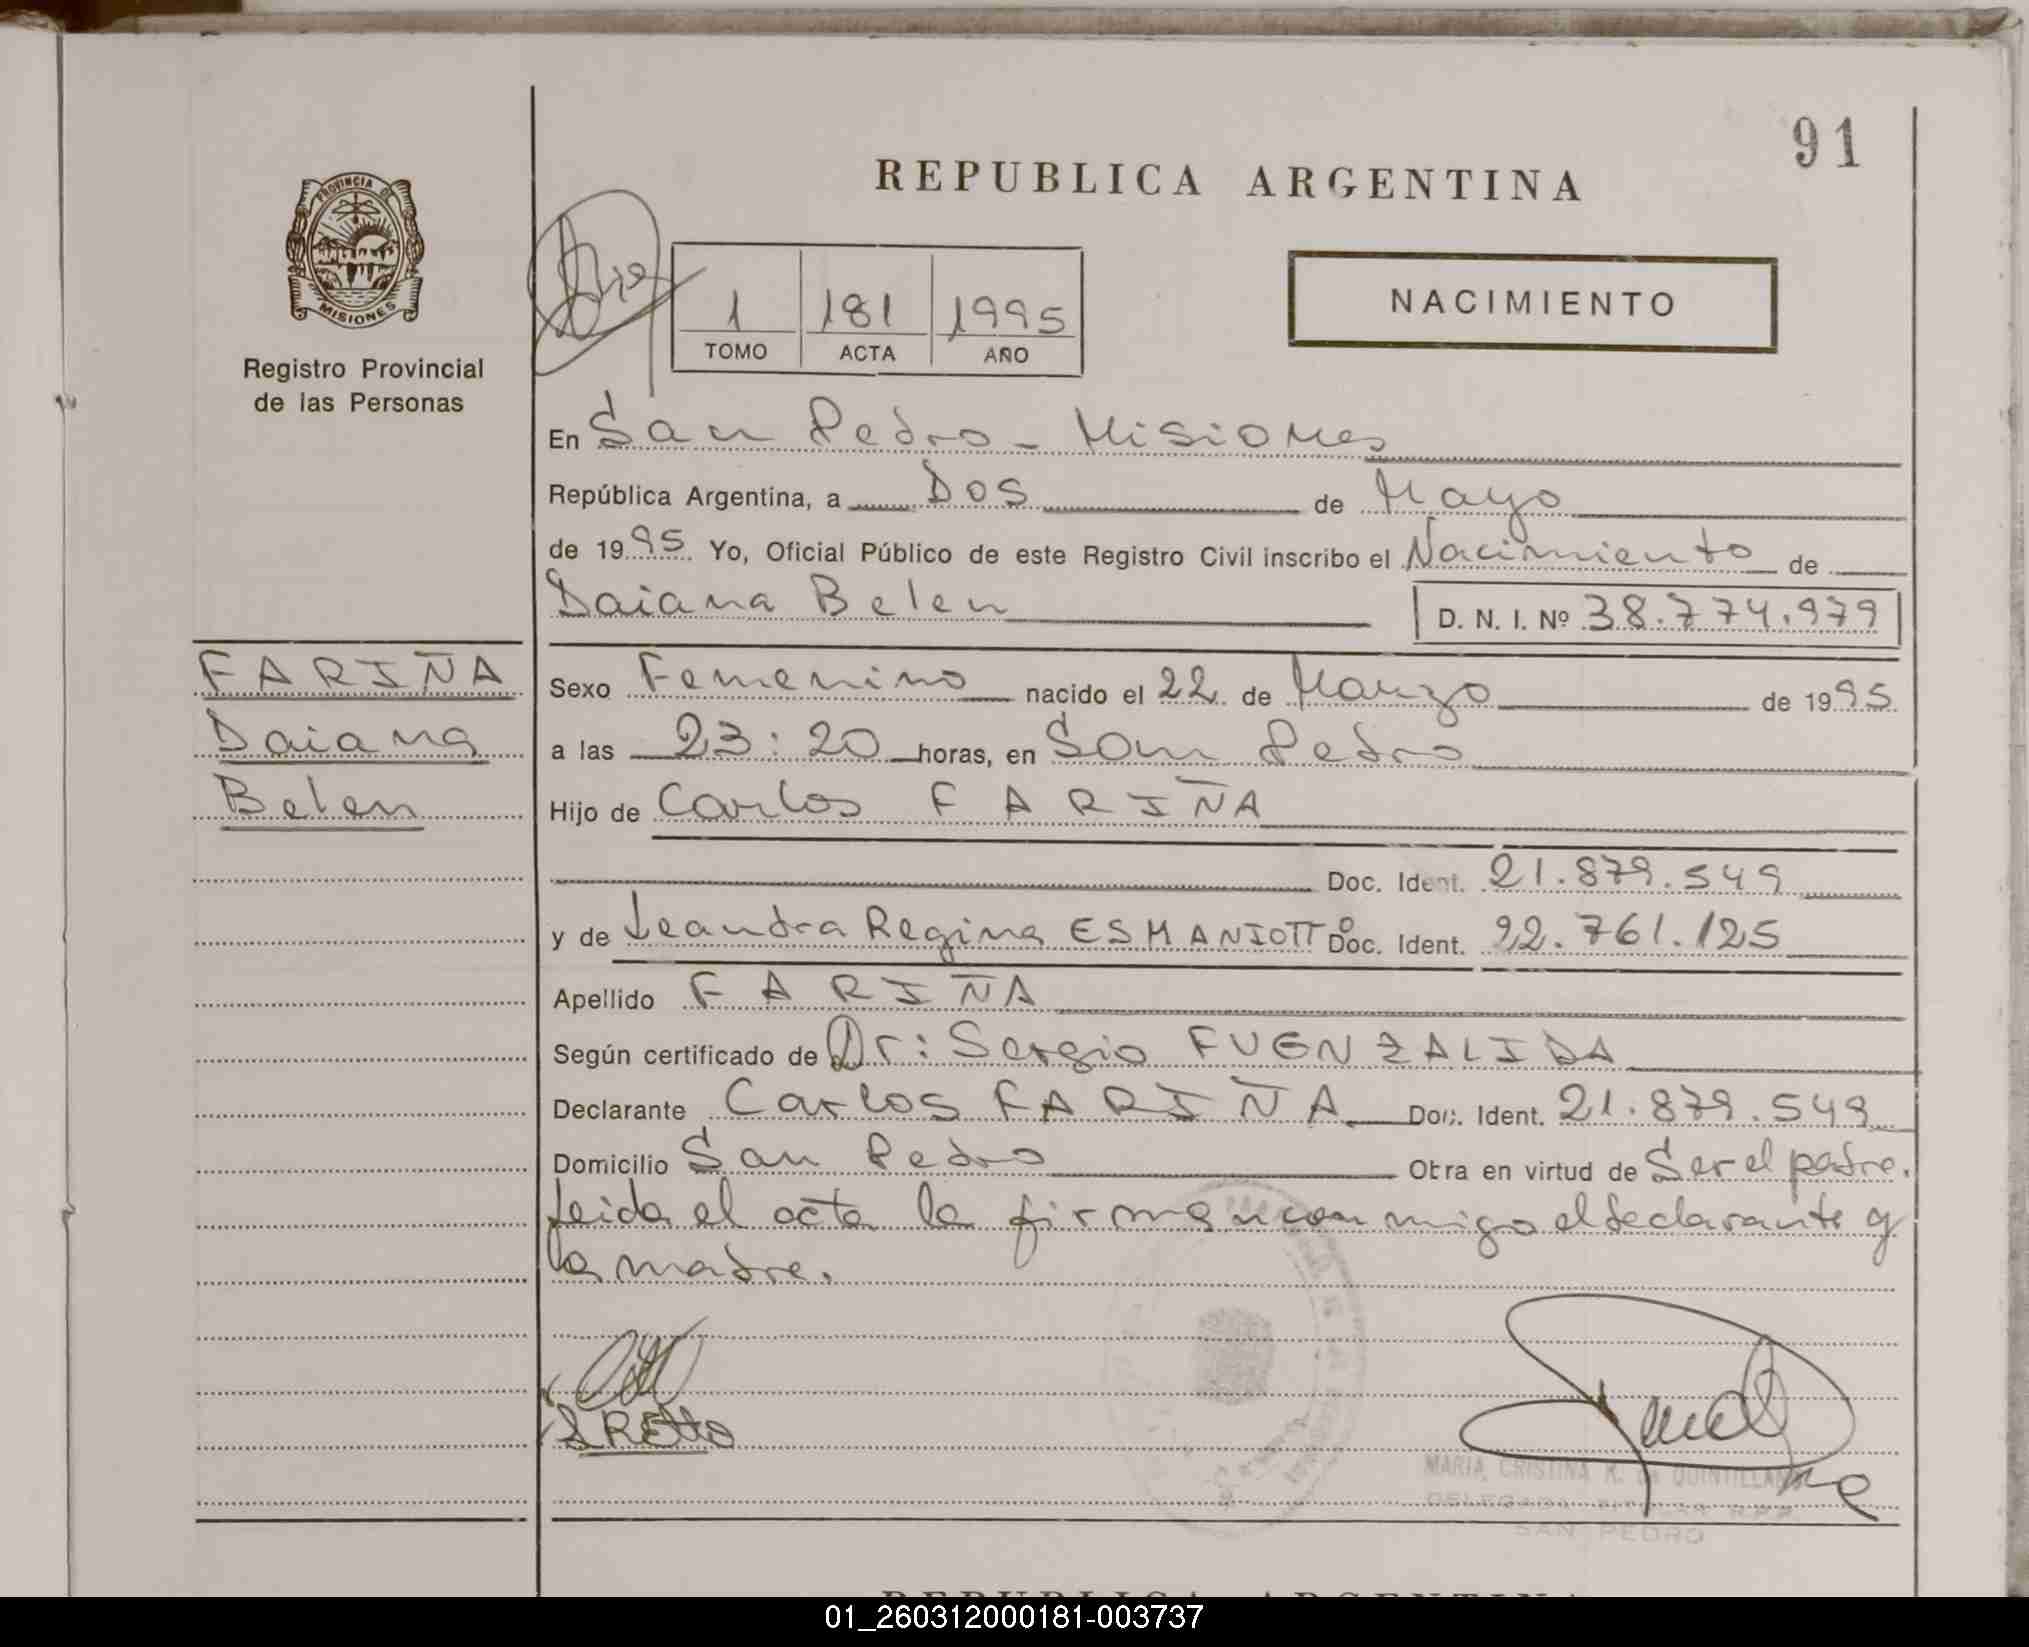 91
REPUBLICA ARGENTINA
PROVINCIA DE
MISIONES
Registro Provincial
de las Personas
1 181 1995
TOMO ACTA AÑO
NACIMIENTO
En San Pedro - Misiones
República Argentina, a Dos de Mayo
de 1995 Yo, Oficial Público de este Registro Civil inscribo el Nacimiento de
Daiana Belen D. N. I. Nº 38.774.979
FARIÑA
Daiana
Belen
Sexo Femenino nacido el 22 de Marzo de 1995
a las 23:20 horas, en San Pedro
Hijo de Carlos FARIÑA
Doc. Ident. 21.879.549
y de Leandra Regina ESMANIOTTO Doc. Ident. 22.761.125
Apellido FARIÑA
Según certificado de Dr: Sergio FUENZALIDA
Declarante Carlos FARIÑA Doc. Ident. 21.879.549
Domicilio San Pedro Obra en virtud de Ser el padre.
Leida el acta la firman conmigo el declarante y
la madre.
MARIA CRISTINA K. de QUINTILLAN
DELEGADA TITULAR R.P.P.
SAN PEDRO
REPUBLICA ARGENTINA
01_260312000181-003737